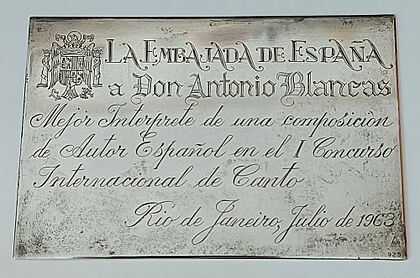 LA EMBAJADA DE ESPAÑA
a Don Antonio Blancas
Mejor Interprete de una composición
de Autor Español en el I Concurso
Internacional de Canto
Rio de Janeiro, Julio de 1963